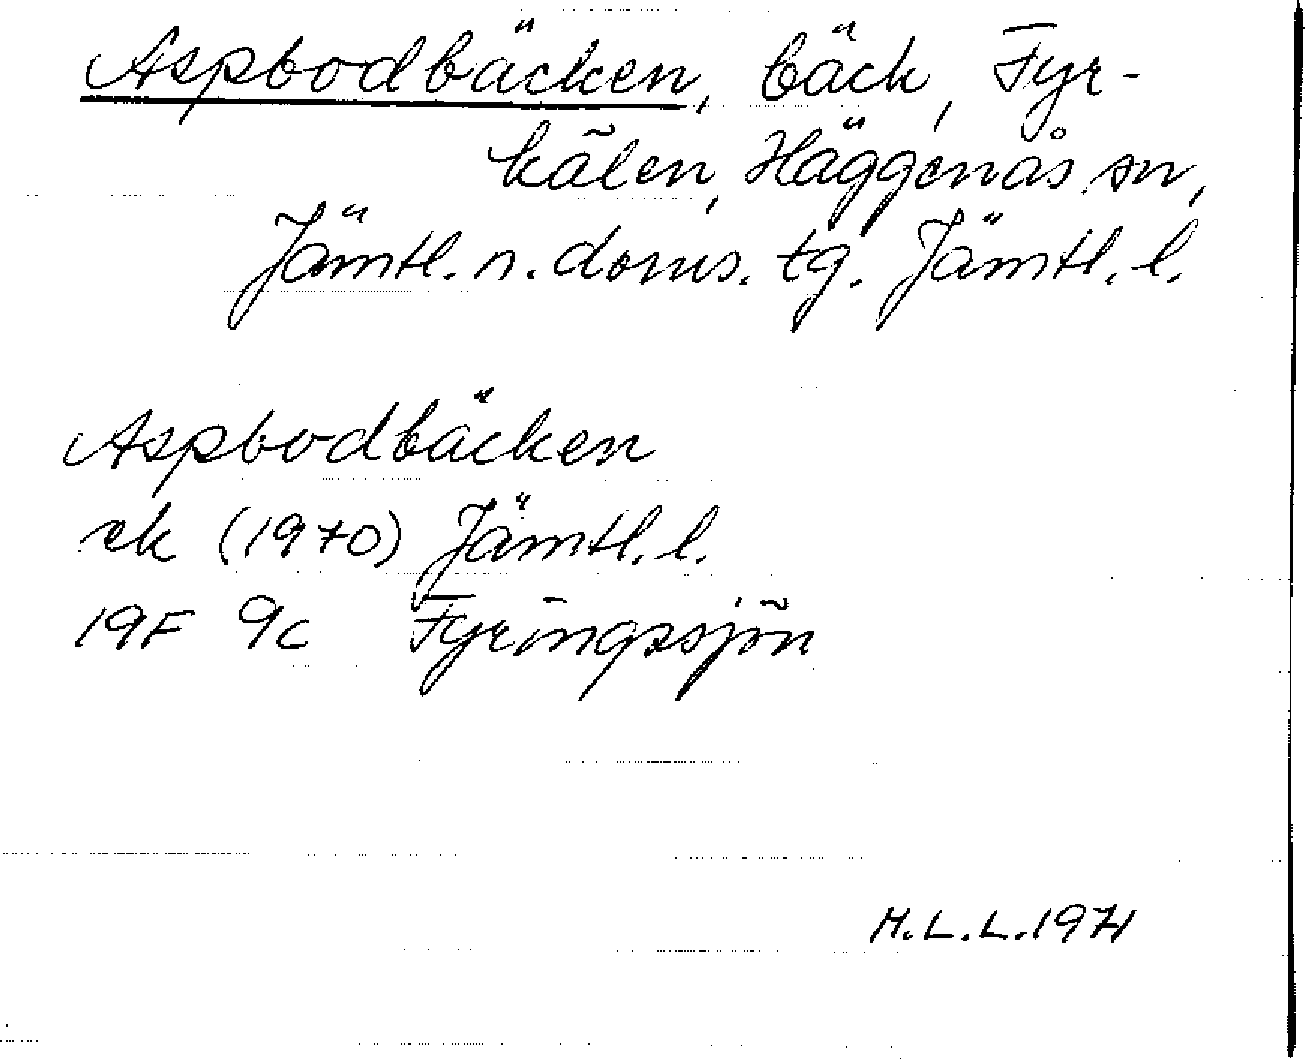 Aspbodbäcken, bäck, Fyr-
kälen, Häggenås sn,
Jämtl. n. doms. tg. Jämtl. l.
Aspbodbäcken
ek (1970) Jämtl. l.
19F 9c Fyringssjön
M.L.L. 1971